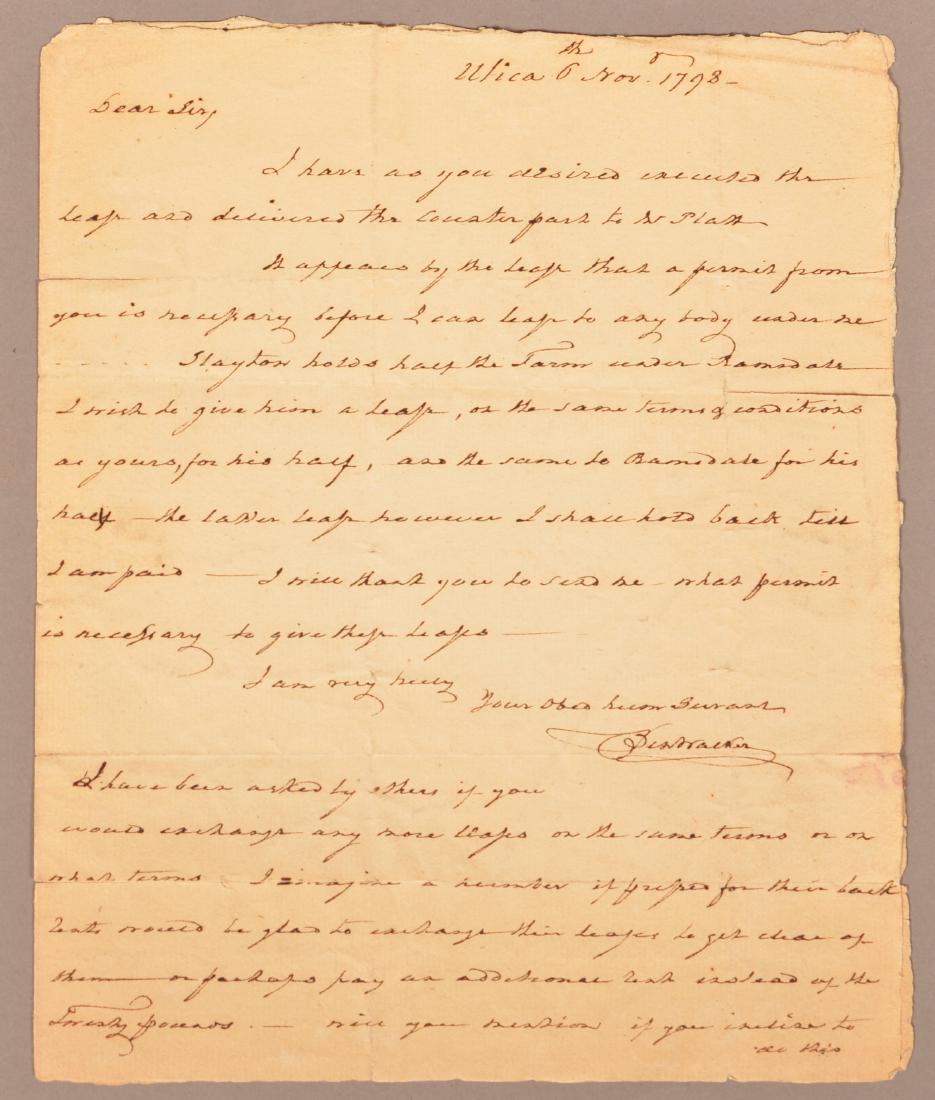 Utica 6th Novr. 1798 -
Dear Sir,
I have as you desired executed the
lease and delivered the Counterpart to Mr Platt
It appears by the lease that a permit from
you is necessary before I can lease to any body under me
Slayton holds half the Farm under Ramsdale
I wish to give him a lease, on the same terms & conditions
as yours, for his half, and the same to Ramsdale for his
half - the latter lease however I shall hold back till
I am paid — I will thank you to send me - what permit
is necessary to give these leases —
I am very truly
Your Obed hum Servant
I have been asked by others if you
would exchange any more leases on the same terms or on
what terms I imagine a number if pressed for their back
Rents would be glad to exchange their leases to get clear of
them — or perhaps pay an additional rent instead of the
Twenty pounds. — will you mention if you incline to
do this